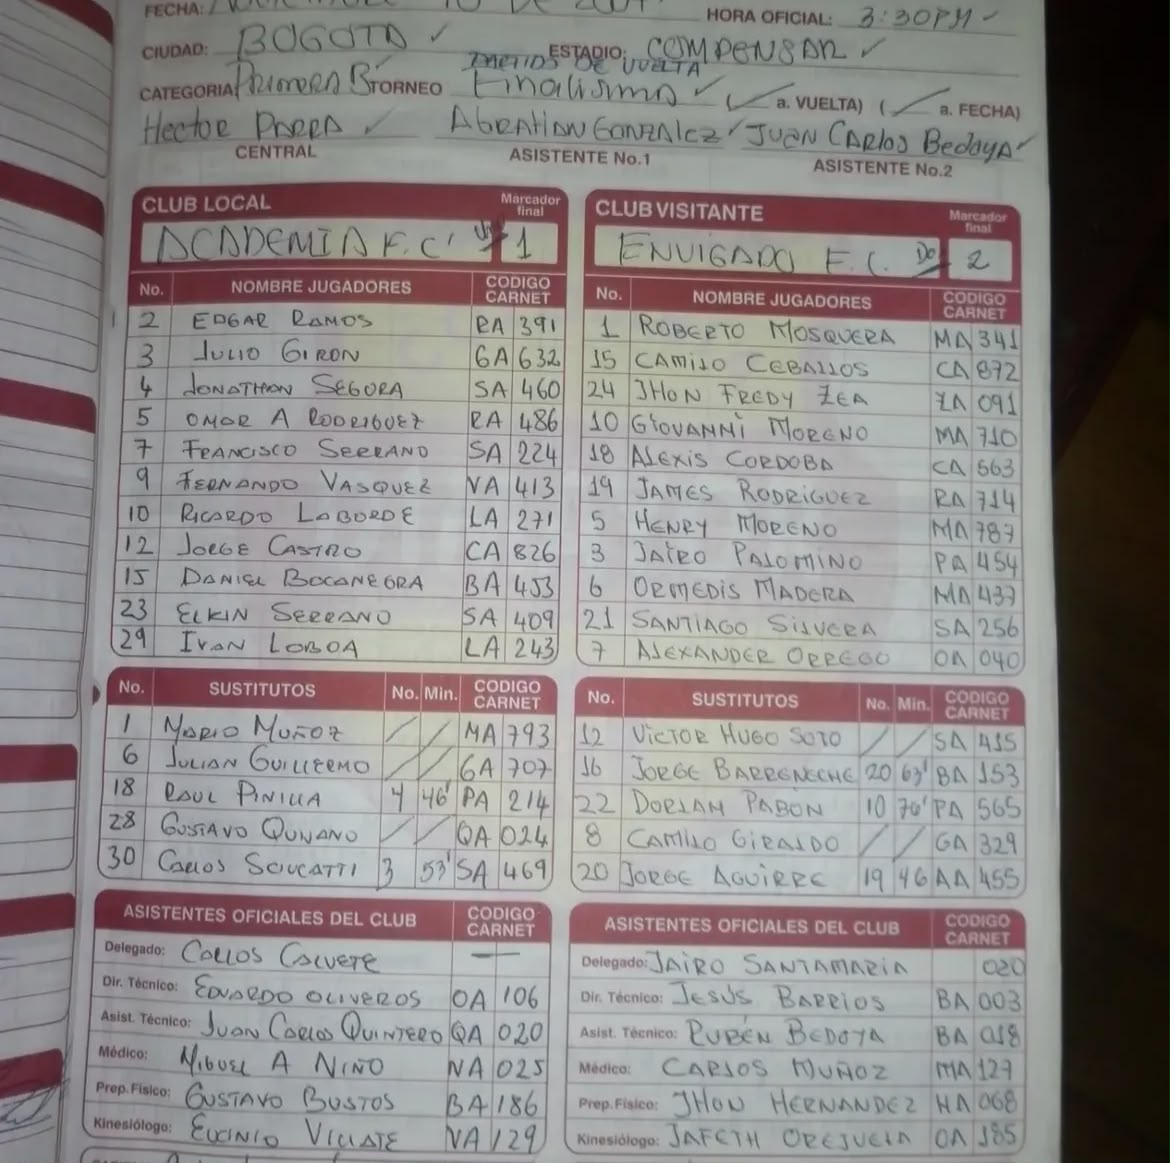 FECHA: 10 DE 2007 HORA OFICIAL: 3:30PM
CIUDAD: BOGOTA ESTADIO: COMPENSAR
PARTIDO DE VUELTA
CATEGORIA Primera B TORNEO Finalisima ( a. VUELTA) ( a. FECHA)
Hector PARRA Juan CARlos BedoyA
CENTRAL ASISTENTE No.1 ASISTENTE No.2
CLUB LOCAL Marcador final
ACADEMIA F.C. 1
No. NOMBRE JUGADORES CODIGO CARNET
2 EDGAR RAMOS RA 391
3 JULIO GIRON GA 632
4 JONATHAN SEGURA SA 460
5 OMAR A RODRIGUEZ RA 486
7 FRANCISCO SERRANO SA 224
9 FERNANDO VASQUEZ VA 413
10 RICARDO LABORDE LA 271
12 JORGE CASTRO CA 826
15 DANIEL BOCANEGRA BA 453
23 ELKIN SERRANO SA 409
29 IVAN LOBOA LA 243
No. SUSTITUTOS No. Min. CODIGO CARNET
1 MARIO MUÑOZ / / MA 793
6 JULIAN GUILLERMO / / GA 707
18 RAUL PINILLA 4 46' PA 214
28 GUSTAVO QUNANO / / QA 024
30 CARLOS SCIUCATTI 3 53' SA 469
ASISTENTES OFICIALES DEL CLUB CODIGO CARNET
Delegado: CARLOS CALVETE —
Dir. Técnico: EDUARDO OLIVEROS OA 106
Asist. Técnico: JUAN CARLOS QUINTERO QA 020
Médico: MIGUEL A NIÑO NA 025
Prep.Físico: GUSTAVO BUSTOS BA 186
Kinesiólogo: VILLATE VA 129
CLUB VISITANTE Marcador final
ENVIGADO F.C. Dos 2
No. NOMBRE JUGADORES CODIGO CARNET
1 ROBERTO MOSQUERA MA 341
15 CAMILO CEBALLOS CA 872
24 JHON FREDY ZEA ZA 091
10 GIOVANNI MORENO MA 710
18 ALEXIS CORDOBA CA 563
19 JAMES RODRIGUEZ RA 714
5 HENRY MORENO MA 787
3 JAIRO PALOMINO PA 454
6 ORMEDIS MADERA MA 437
21 SANTIAGO SILVERA SA 256
7 ALEXANDER ORREGO OA 040
No. SUSTITUTOS No. Min. CODIGO CARNET
12 VICTOR HUGO SOTO / / SA 415
16 JORGE BARRENECHE 20 63' BA 153
22 DORLAM PABON 10 76' PA 565
8 CAMILO GIRALDO / / GA 329
20 JORGE AGUIRRE 19 46 AA 455
ASISTENTES OFICIALES DEL CLUB CODIGO CARNET
Delegado: JAIRO SANTAMARIA 020
Dir. Técnico: JESÚS BARRIOS BA 003
Asist. Técnico: RUBÉN BEDOYA BA 018
Médico: CARLOS MUÑOZ MA 127
Prep.Físico: JHON HERNANDEZ HA 068
Kinesiólogo: JAFETH OREJUELA OA 185